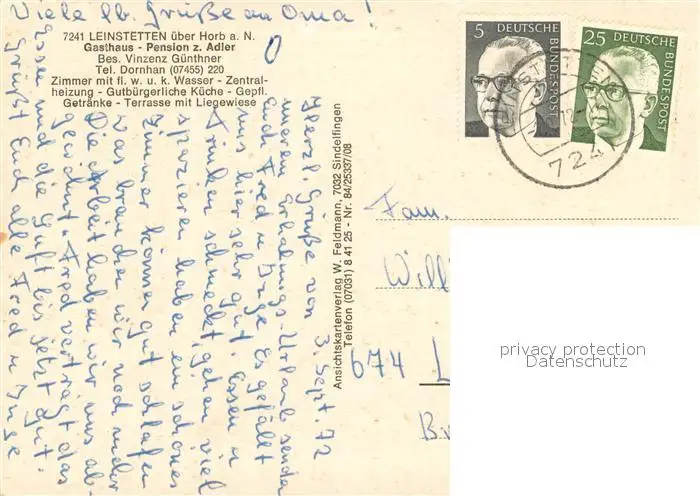 Viele lb. Grüße an Oma!
7241 LEINSTETTEN über Horb a. N.
Gasthaus - Pension z. Adler
Bes. Vinzenz Günthner
Tel. Dornhan (07455) 220
Zimmer mit fl. w. u. k. Wasser - Zentral-
heizung - Gutbürgerliche Küche - Gepfl.
Getränke - Terrasse mit Liegewiese
Herzl. Grüße von 3. Sept. 72
unserem Erholungs-Urlaub sendet
Euch Fred u. Inge. Es gefällt
uns hier sehr gut. Essen u.
Trinken schmeckt, gehen viel
spazieren, haben ein schönes
Zimmer, können gut schlafen
was brauchen wir noch mehr
Die Arbeit haben wir uns ab-
gewöhnt. Fred verträgt das
Essen und die Luft bis jetzt gut.
Grüßt Euch alle Fred u. Inge
Ansichtskartenverlag W. Feldmann, 7032 Sindelfingen
Telefon (07031) 8 41 25 - Nr. 84/25337/08
5 DEUTSCHE BUNDESPOST
25 DEUTSCHE BUNDESPOST
724
Fam.
Willi
674 L
privacy protection
Datenschutz